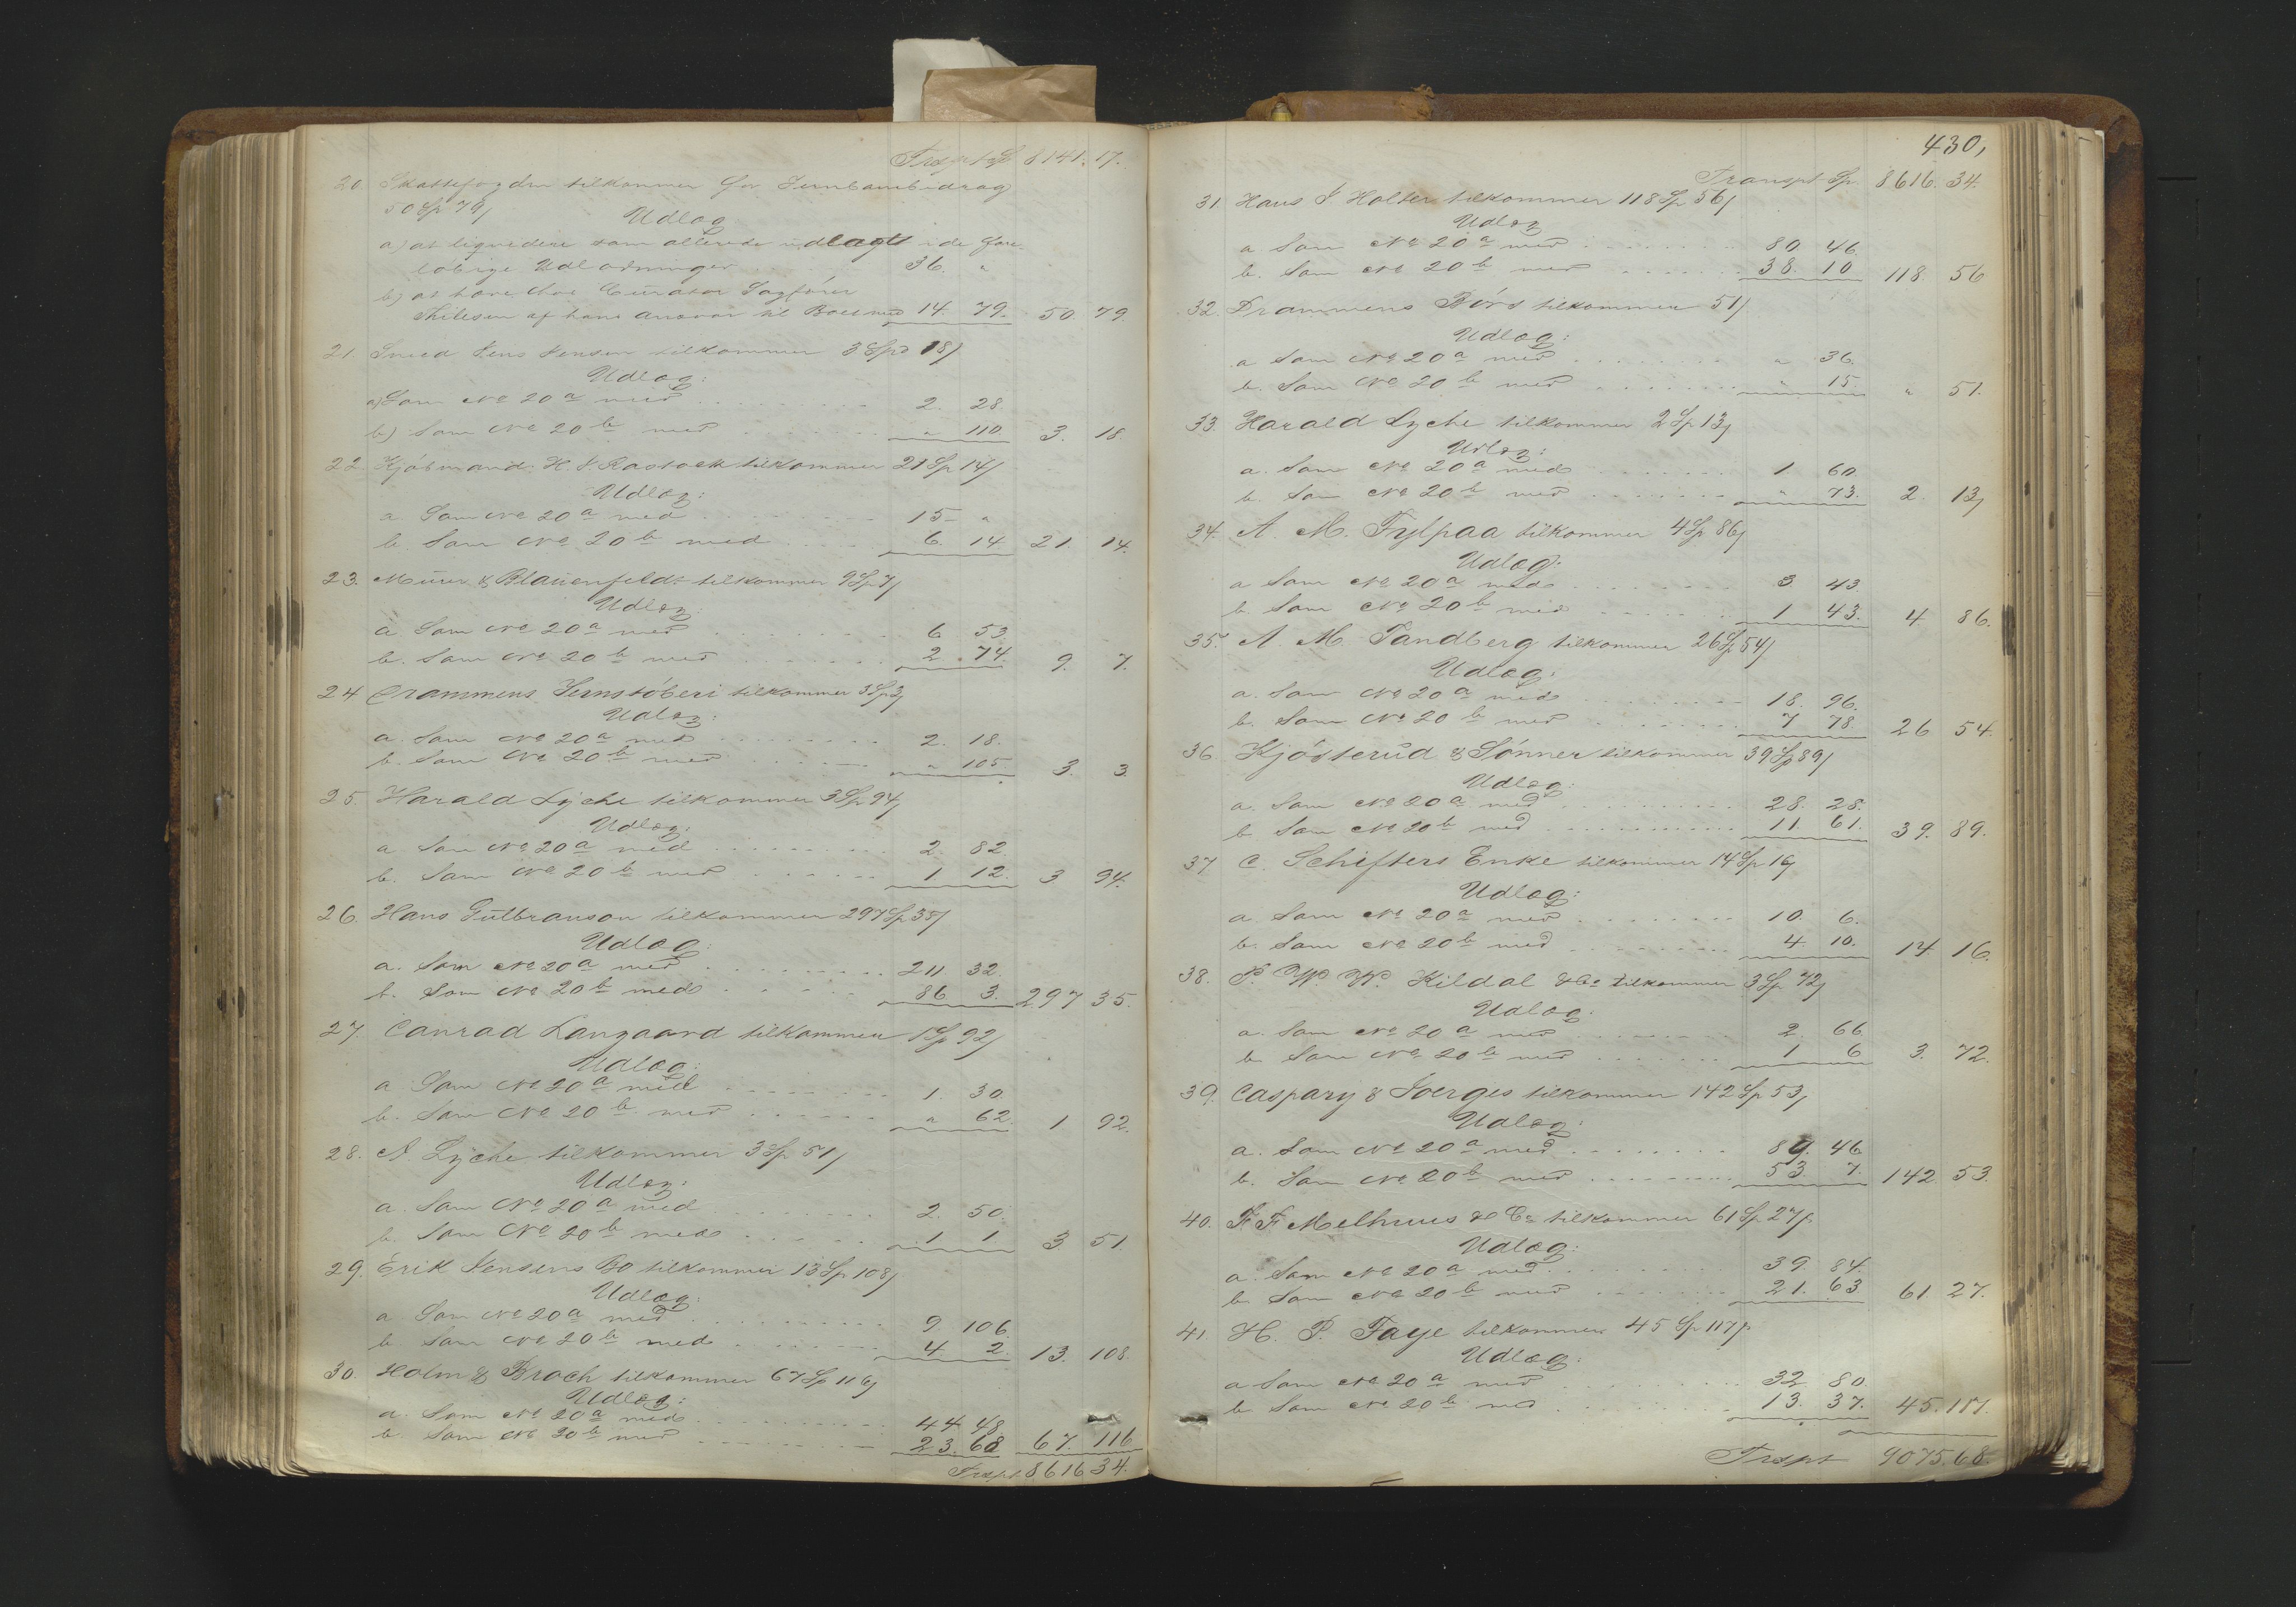 Trspt Sp 8141. 17.
20 Skattefogden tilkommer for Jernbanebidrag
50 Sp 79/
Udlæg
a) at liqvidere som allerede udlagt i de fore-
løbige Udlodninger 36. "
b) at hæve hos Curator Sagfører
af hans Ansvar til Boet med 14. 79. 50. 79.
21. Sneed Jens Jensen tilkommer 3 Spd 18/
Udlæg:
a) Som No 20 a med 2. 28
b) Som No 20 b med " 110 3. 18.
22. Kjøbmand H. J. Rastock tilkommer 21 Sp 14/
Udlæg:
a. Som No 20 a med 15 "
b. Som No 20 b med 6. 14 21. 14.
23. Muur & Blauenfeldt tilkommer 9 Sp 7/
Udlæg:
a. Som No 20 a med 6 53.
b. Som No 20 b med 2. 74. 9. 7.
24 Drammens Jernstøberi tilkommer 3 Sp 3/
Udlæg:
a. Som No 20 a med 2. 18.
b. Som No 20 b med " 105 3. 3
25. Harald Lyche tilkommer 3 Sp 94/
Udlæg:
a Som No 20 a med 2. 82.
b. Som No 20 b med 1 12. 3 94.
26. Hans Gulbranson tilkommer 297 Sp 35/
Udlæg:
a. Som No 20 a med 211 32.
b. Som No 20 b med 86 3. 297 35.
27. Conrad Langaard tilkommer 1 Sp 92/
Udlæg:
a. Som No 20 a med 1. 30.
b. Som No 20 b med " 62. 1 92.
28. A. Lyche tilkommer 3 Sp 51/
Udlæg:
a. Som No 20 a med 2. 50.
b. Som No 20 b med 1 1 3. 51.
29. Erik Jensens Bo tilkommer 13 Sp 108/
Udlæg:
a Som No 20 a med 9. 106.
b. Som No 20 b med 4 2. 13. 108.
30. Holm & Broch tilkommer 67 Sp 116/
Udlæg:
a. Som No 20 a med 44 48
b. Som No 20 b med 23. 68 67. 116
Trspt 8616 34.
430,
Transpt Sp 8616. 34.
31. Hans J Holter tilkommer 118 Sp 56/
Udlæg
a Som No 20 a med 80 46
b. Som No 20 b med 38. 10 118. 56
32. Drammens Børs tilkommer 51/
Udlæg:
a Som No 20 a med " 36.
b. Som No 20 b med " 15. " 51.
33. Harald Lyche tilkommer 2 Sp 13/
Udlæg:
a. Som No 20 a med 1 60.
b. Som No 20 b med " 73. 2. 13/
34. A. M. Fylpaa tilkommer 4 Sp 86/
Udlæg:
a Som No 20 a med 3 43.
b. Som No 20 b med 1 43. 4. 86.
35. A M. Sandberg tilkommer 26 Sp 54/
Udlæg:
a. Som No 20 a med 18. 96.
b. Som No 20 b med 7 78. 26 54.
36. Kjøsterud & Sønner tilkommer 39 Sp 89/
Udlæg:
a. Som No 20 a med 28. 28.
b Som No 20 b med 11. 61. 39. 89.
37. C. Schifters Enke tilkommer 14 Sp 16/
Udlæg:
a. Som No 20 a med 10. 6.
b. Som No 20 b med 4. 10. 14. 16.
38. P. W. W. Kildal & Co tilkommer 3 Sp 72/
Udlæg.
a. Som No 20 a med 2. 66
b. Som No 20 b med 1 6 3. 72.
39. Caspary & Joerges tilkommer 142 Sp 53/
Udlæg:
a. Som No 20 a med 89. 46
b. Som No 20 b med 53 7. 142 53.
40. Fr F Melhuus & Co tilkommer 61 Sp 27/
Udlæg:
a. Som No 20 a med 39. 84.
b. Som No 20 b med 21. 63 61 27.
41. H. P. Faye tilkommer 45 Sp 117/
Udlæg:
a Som No 20 a med 32 80
b. Som No 20 b med 13. 37. 45. 117.
Trspt 9075. 68.